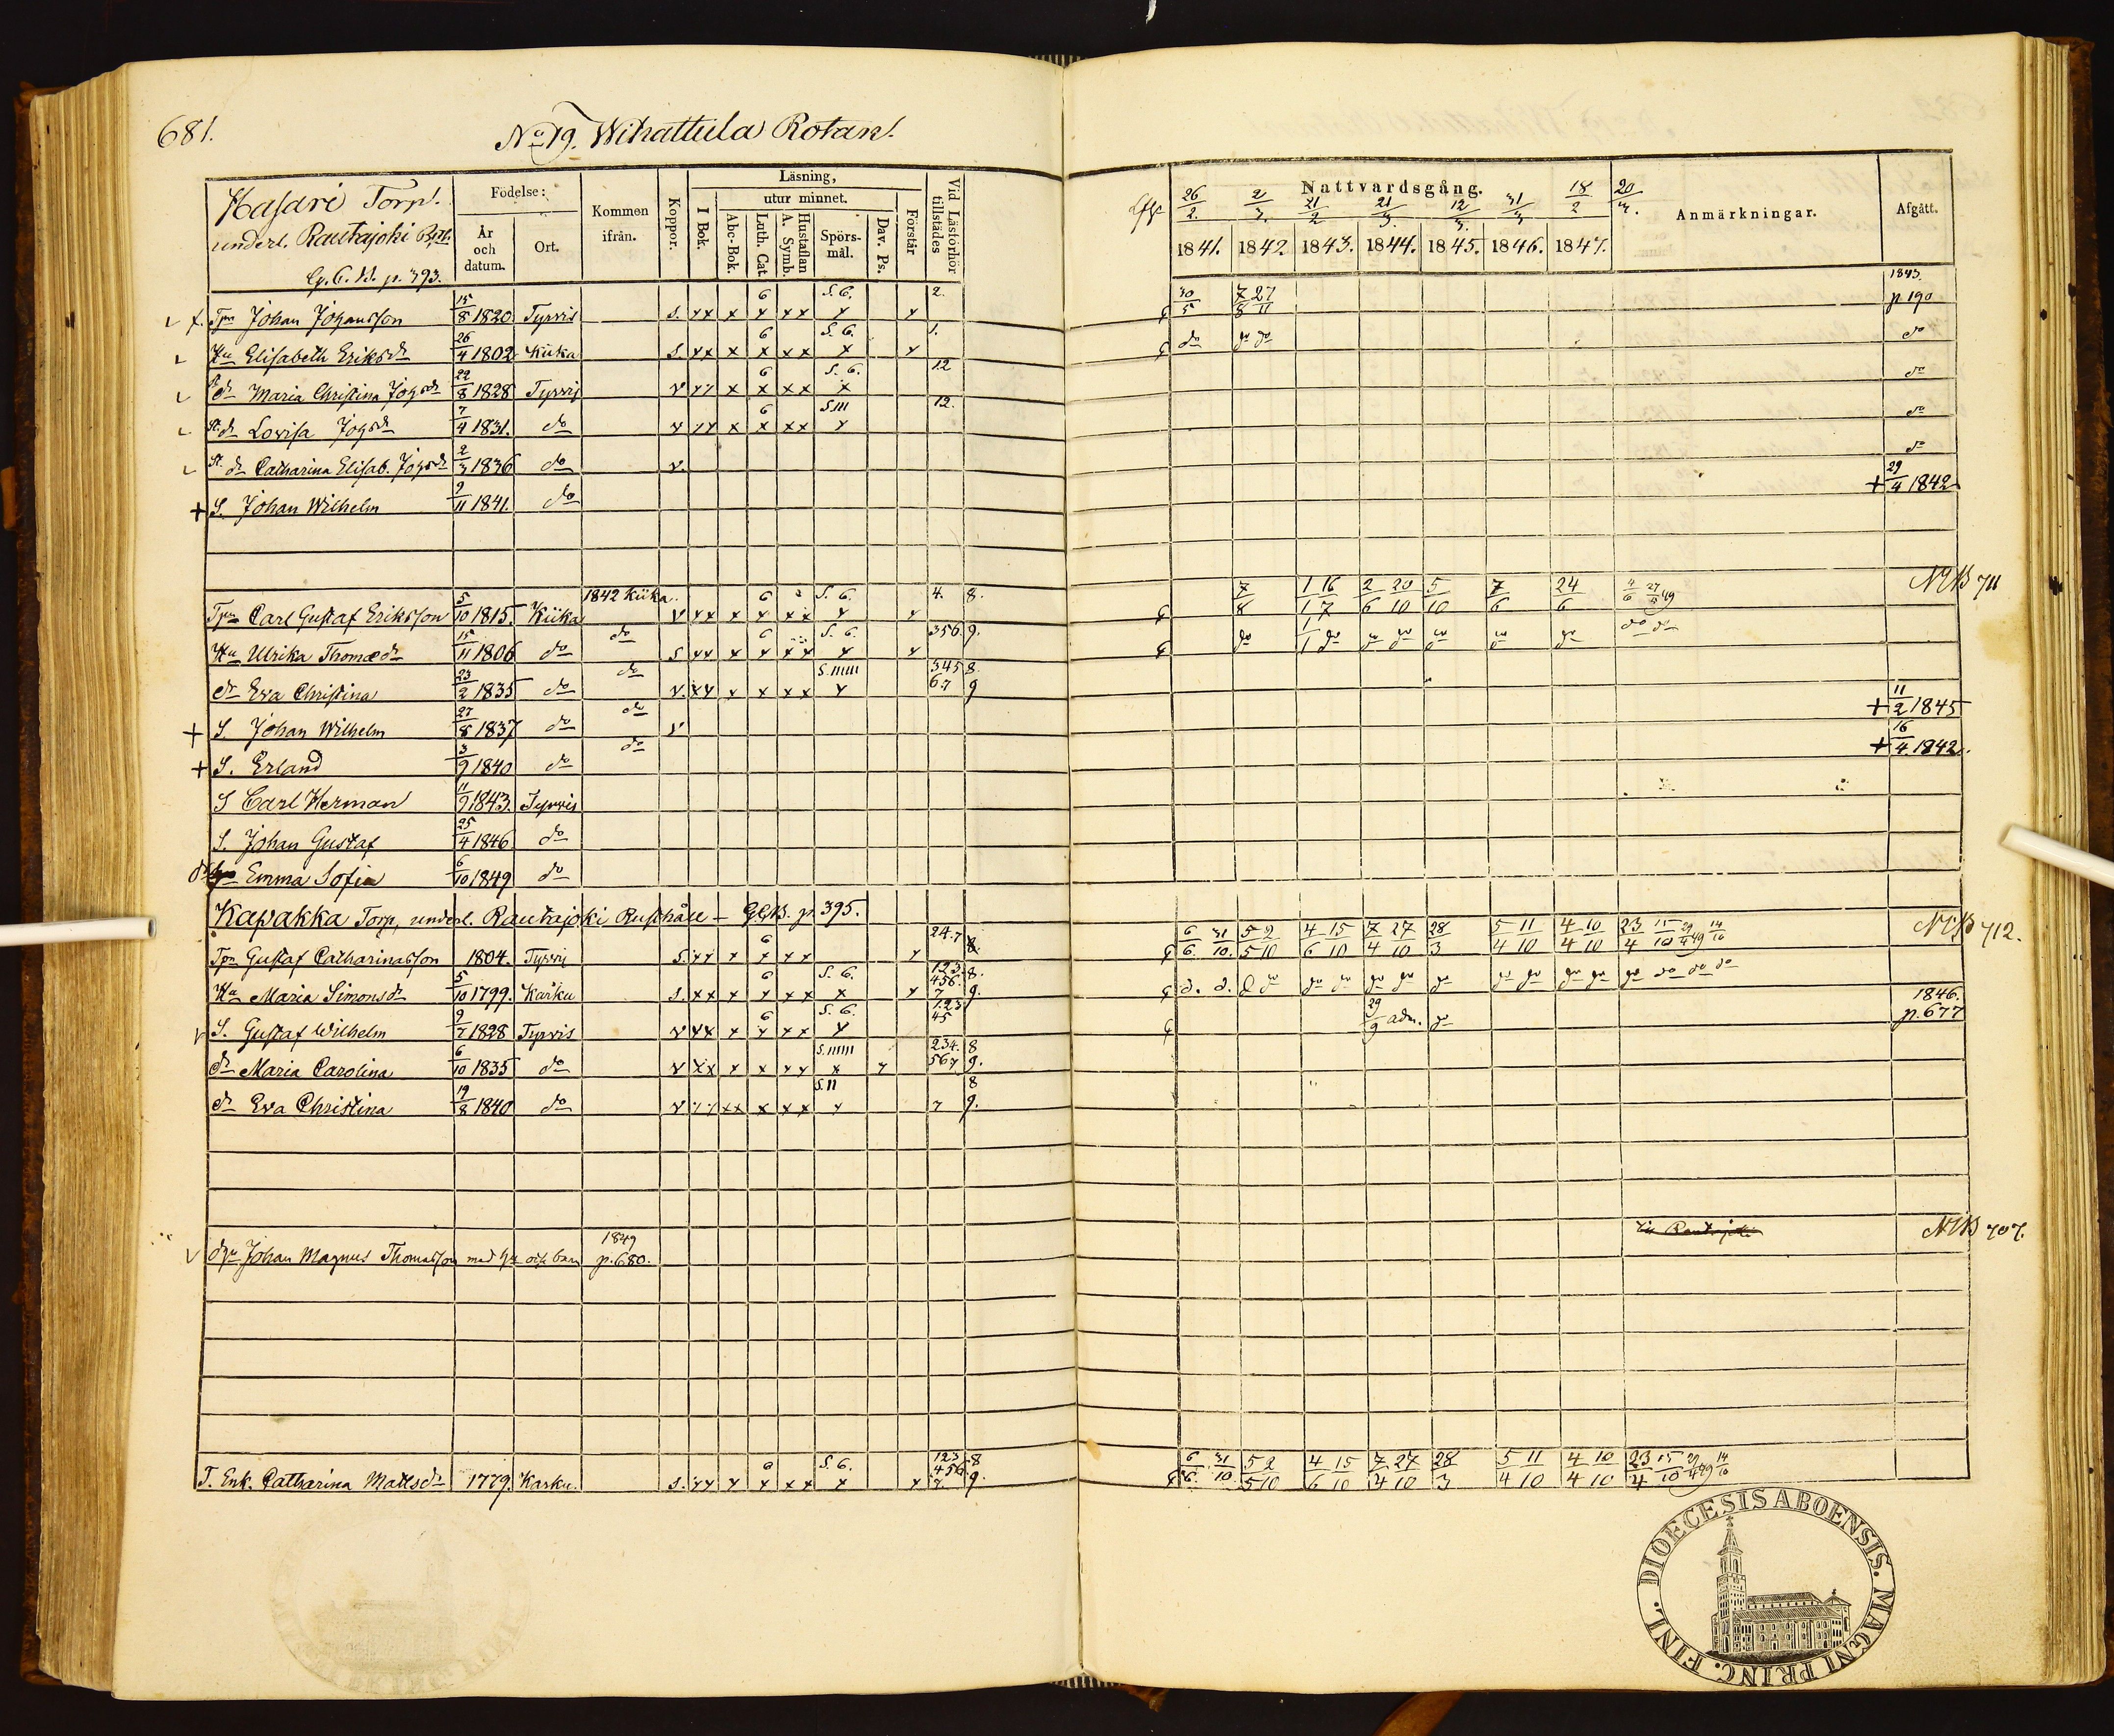 681. No 19. Wihattula Rotan.
Hasari Torp.
underl. Rautajoki
G.C.B. p. 393.
Födelse:
År och datum.
Ort.
Kommen ifrån.
Koppor.
Läsning,
I Bok.
utur minnet.
Abc-Bok.
Luth. Cat.
Hustaflan A. Symb.
Spörs-mål.
Dav. Ps.
Förstår
Vid Läsförhör tillstädes
Nattvardsgång.
26/2 2/3 21/2 21/3 12/3 31/3 18/2 20/3.
1841. 1842. 1843. 1844. 1845. 1846. 1847.
Anmärkningar.
Afgått.
Tpn Johan Johansson 15/8 1820 Tyrvis S. 6 S. 6. 2. 30/5 7/8 27/11 1843. p 190
Hu Elisabeth Eriksdr 26/4 1802 Kiika S. 6 S. 6. 1. do do do do
dr Maria Christina Johsdr 22/8 1828 Tyrvis v 6 S. 6. 12 do
St. dr Lovisa Johsdr 7/4 1831. do v 6 S.III 12. do
St. dr Catharina Elisab. Johsdr 2/3 1836 do v. do
+ S. Johan Wilhelm 9/11 1841. do + 29/4 1842
Tpn Carl Gustaf Eriksson 5/10 1815. Kiika 1842 Kiika. v 6 S. 6. 4. 8. 7/8 1/1 16/7 2/6 20/10 5/10 7/6 24/6 4/6 27/49 NCB 711
Hu Ulrika Thomædr 15/11 1806 do do S 6 S. 6. 356. 9. do 1/1 do do do do do do do do
dr Eva Christina 23/2 1835 do do v. S.IIIII 345 67 8. 9
+ S. Johan Wilhelm 27/8 1837 do do v + 11/2 1845
+ S. Erland 3/9 1840 do do + 16/4 1842.
S Carl Herman 11/9 1843. Tyrvis
S. Johan Gustaf 25/4 1846 do
dr Emma Sofia 6/10 1849 do
Kapakka Torp, underl. Rautajoki Rusthåll - G.C.B. p. 395.
Tpn Gustaf Catharinasson 1804. Tyrvis S. 6 24.7 8. 6/6. 31/10. 5/5 2/10 4/6 15/10 7/4 27/10 28/3 5/4 11/10 4/4 10/10 23/4 15/10 29/4 49 14/10 NCB 712.
Hu Maria Simonsdr 5/10 1799. Karku S. 6 S. 6. 123. 456. 7 8. 9. d. d. do do do do do do do do do do do do do do do
S. Gustaf Wilhelm 9/7 1828 Tyrvis v 6 S. 6. 123 45 29/9 adm. do 1846. p. 677
dr Maria Carolina 6/10 1835 do v S.IIIII 234. 567 8 9.
dr Eva Christina 19/8 1840 do v S.II 7 8 9.
Johan Magnus Thomasson med hu och barn 1849 p. 680. till Rautajoki NCB 707.
T. Enk. Catharina Mattsdr 1779. Karku. S. 6 S. 6. 123 456 7. 8 9. 6/6. 31/10 5/5 2/10 4/6 15/10 7/4 27/10 28/3 5/4 11/10 4/4 10/10 23/4 15/10 29/4 49 14/10
DIOECESIS ABOENSIS. MAGNI PRINC. FINL.